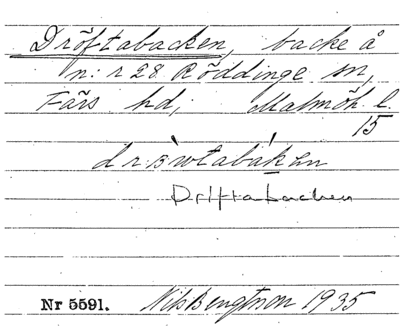 Dröftabacken, backe å
n: r 28 Röddinge sn,
Färs hd, Malmöh. l.
15
Driftabacken
Nr 5591. Nils Bengtsson 1935